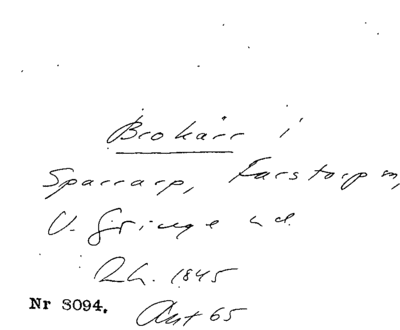 Brokärr i
Sparrarp, Farstorp sn,
V. Göinge hd.
Rh. 1845
Nr S094. Ant 65